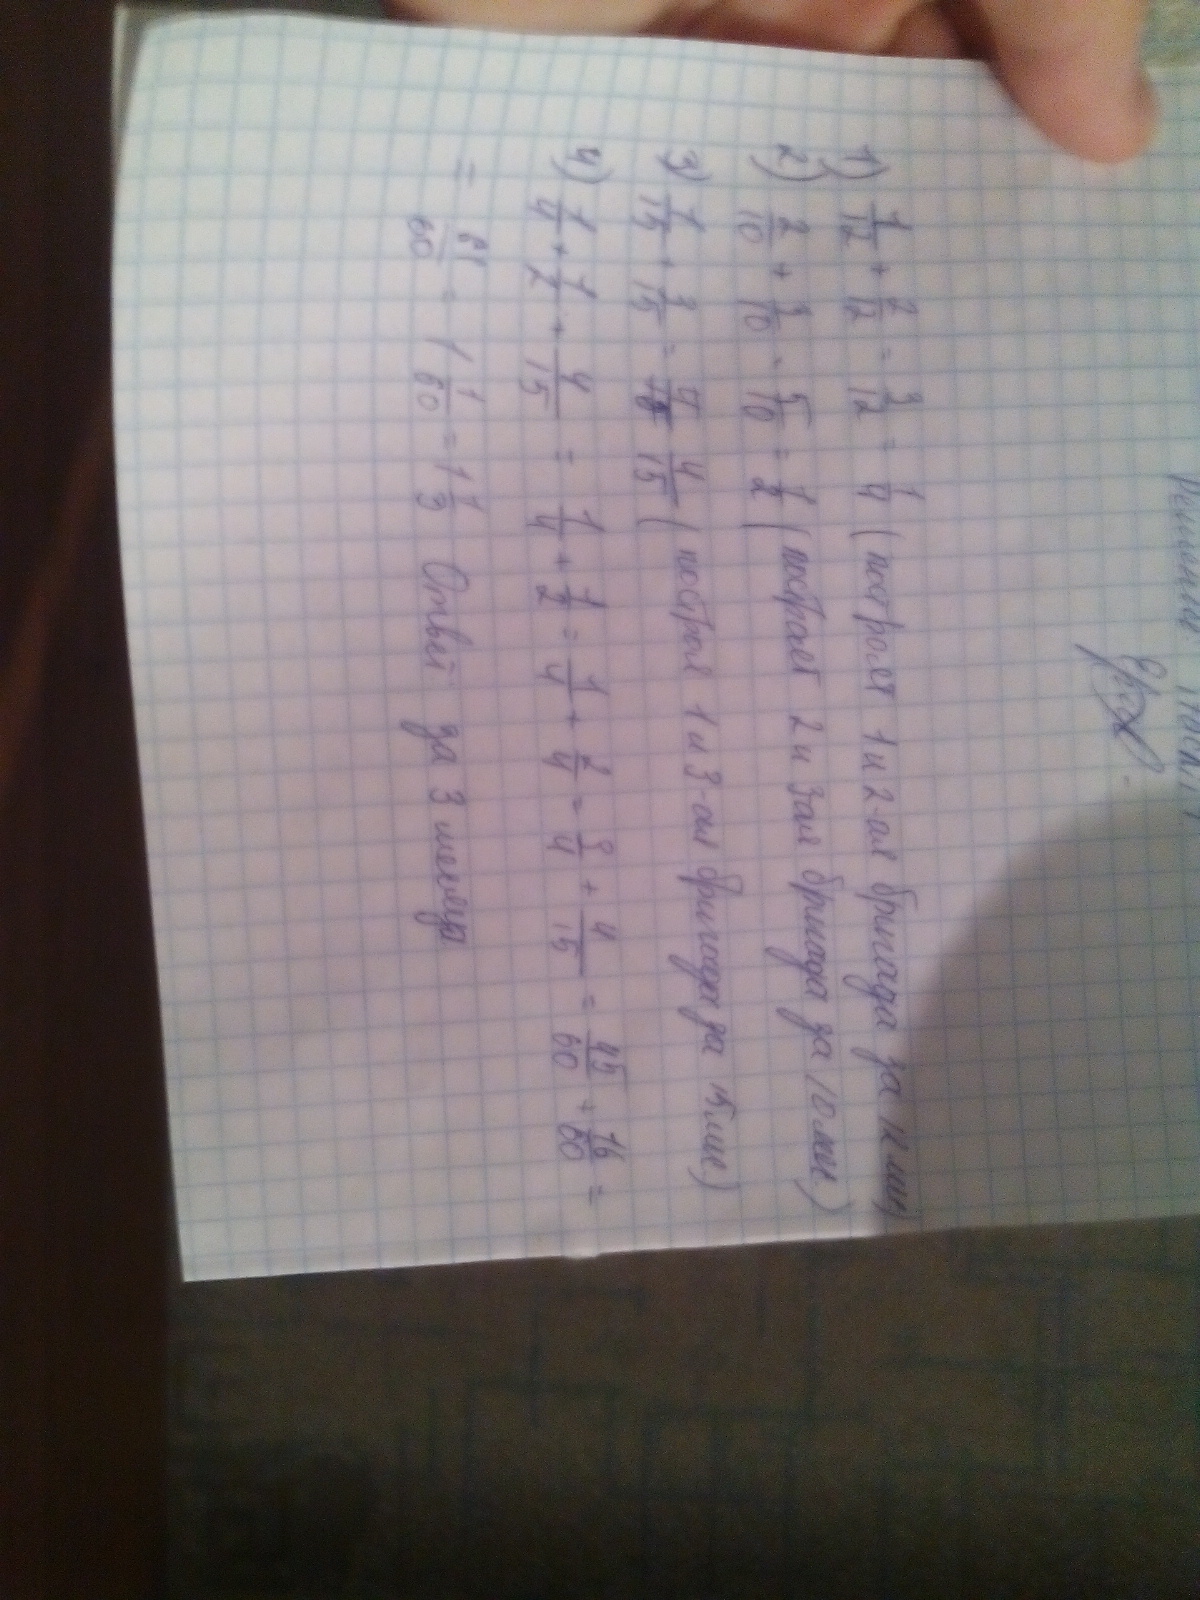 1) 1/12 + 2/12 = 3/12 = 1/4 (построет 1 и 2-ая бригада за 12 мин)
2) 2/10 + 3/10 = 5/10 = 1/2 (построет 2 и 3ая бригада за 10 мин)
3) 1/15 + 3/15 = 4/15 (построе 1 и 3-ая бригада за 15 мин)
4) 1/4 + 1/2 + 4/15 = 1/4 + 1/2 = 1/4 + 2/4 = 3/4 + 4/15 = 45/60 + 16/60 =
= 61/60 = 1 1/60 = 1 1/3 Ответ за 3 месяца